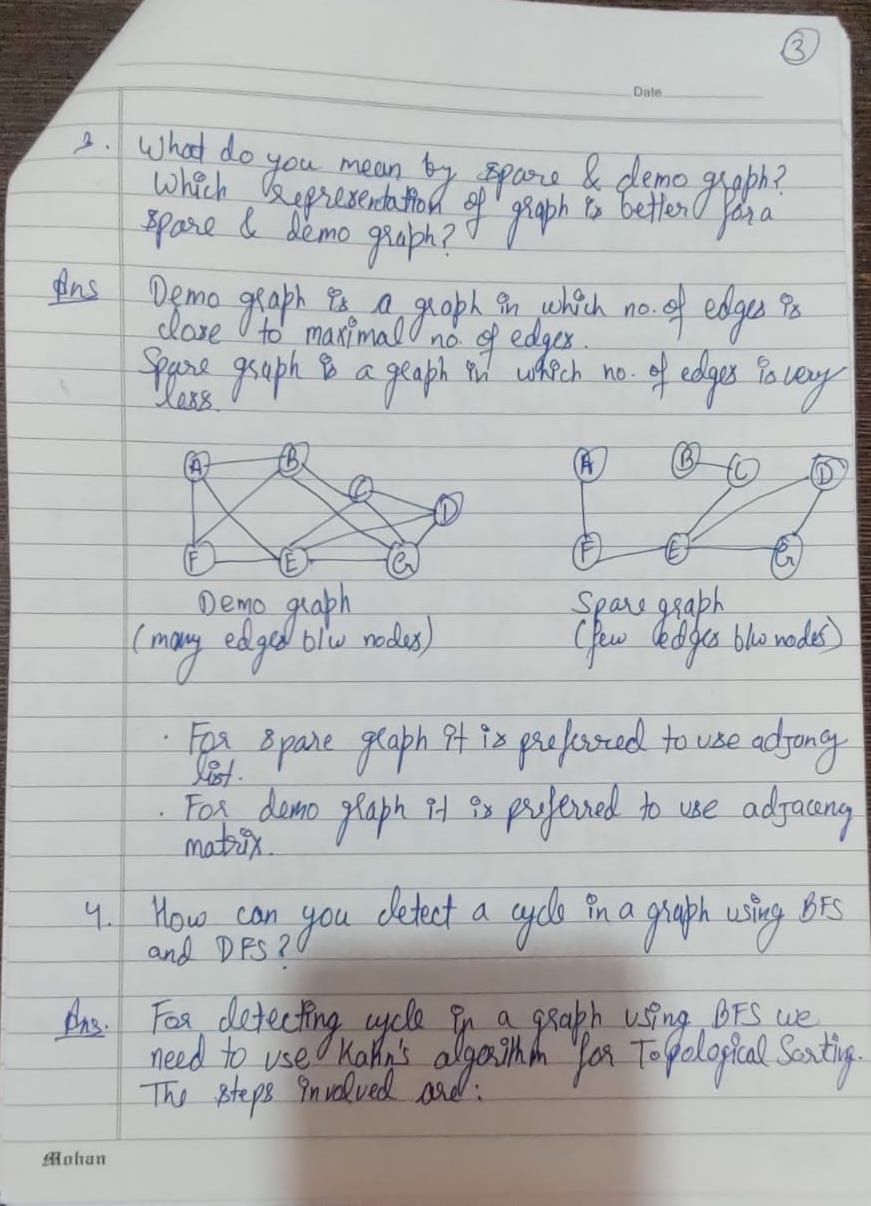 3
Date
3. What do you mean by spare & demo graph?
Which representation of graph is better for a
spare & demo graph?
Ans Demo graph is a graph in which no. of edges is
close to maximal no. of edges.
Spare graph is a graph in which no. of edges is very
less.
A B C D F E G
A B C D F E G
Demo graph
(many edges b/w nodes)
Spare graph
(few edges b/w nodes)
· For spare graph it is preferred to use adjancy
list.
· For demo graph it is preferred to use adjaceny
matrix.
4. How can you detect a cycle in a graph using BFS
and DFS?
Ans. For detecting cycle in a graph using BFS we
need to use Kahn's algorithm for Topological Sorting.
The steps involved are:
Mohan